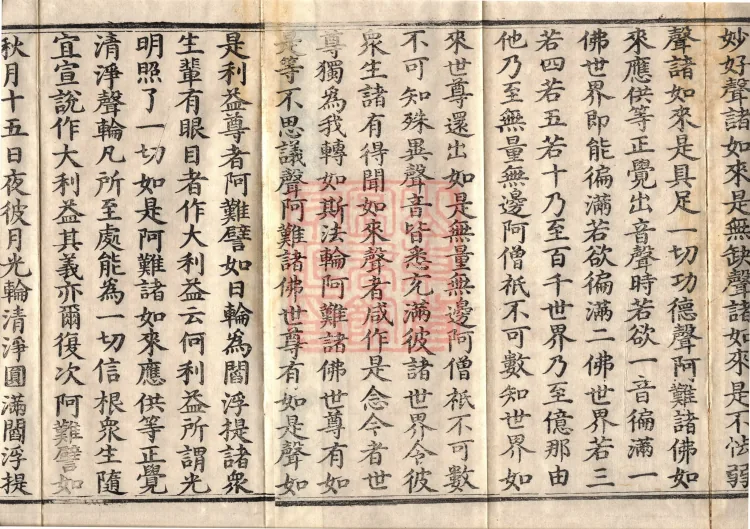 妙好聲諸如來是無缺聲諸如來是不怯弱
聲諸如來是具足一切功德聲阿難諸佛如
來應供等正覺出音聲時若欲一音徧滿一
佛世界即能徧滿若欲徧滿二佛世界若三
若四若五若十乃至百千世界乃至億那由
他乃至無量無邊阿僧祇不可數知世界如
來世尊還出如是無量無邊阿僧祇不可數
不可知殊異聲音皆悉充滿彼諸世界令彼
衆生諸有得聞如來聲者咸作是念今者世
尊獨為我轉如斯法輪阿難諸佛世尊有如
是等不思議聲阿難諸佛世尊有如是聲如
是利益尊者阿難譬如日輪為閻浮提諸衆
生輩有眼目者作大利益云何利益所謂光
明照了一切如是阿難諸如來應供等正覺
清淨聲輪凡所至處能為一切信根衆生隨
宜宣說作大利益其義亦爾復次阿難譬如
秋月十五日夜彼月光輪清淨圓滿閻浮提